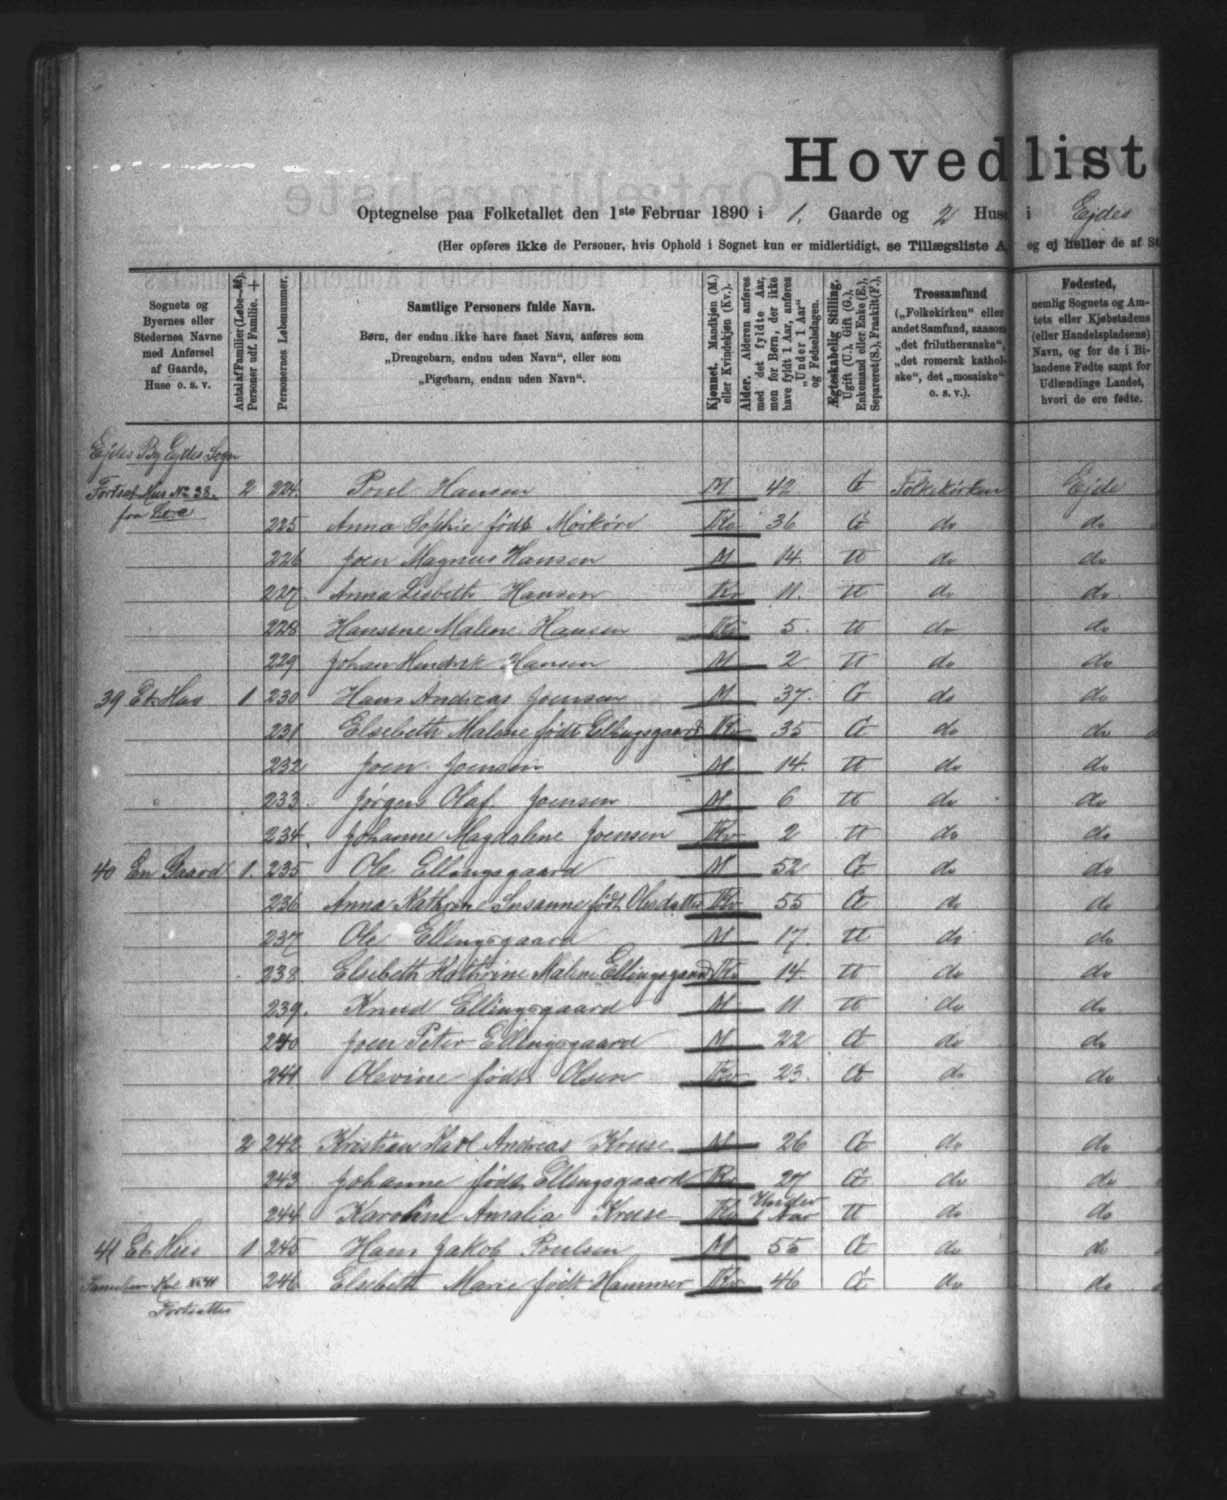 Hovedlist
Optegnelse paa Folketallet den 1ste Februar 1890 i 1. Gaarde og 2 Huse i Ejdes
(Her opføres ikke de Personer, hvis Ophold i Sognet kun er midlertidigt, se Tillægsliste A og ej heller de af St
Sognets og Byernes eller Stedernes Navne med Anførsel af Gaarde, Huse o. s. v.
Antal af Familier (Løbe-№). Personer udf. Familie. +
Personernes Løbenummer.
Samtlige Personers fulde Navn.
Børn, der endnu ikke have faaet Navn, anføres som
„Drengebarn, endnu uden Navn“, eller som
„Pigebarn, endnu uden Navn“.
Kjønnet. Mandkjøn (M.) eller Kvindekjøn (Kv.).
Alder. Alderen anføres med det fyldte Aar, men for Børn, der ikke have fyldt 1 Aar, anføres „Under 1 Aar“ og Fødselsdagen.
Ægteskabelig Stilling. Ugift (U.), Gift (G.), Enkemand eller Enke (E.), Separeret (S.), Fraskilt (F.).
Trossamfund („Folkekirken“ eller andet Samfund, saasom „det frilutheranske“, „det romersk katholske“, det „mosaiske“ o. s. v.).
Fødested, nemlig Sognets og Amtets eller Kjøbstadens (eller Handelspladsens) Navn, og for de i Bilandene Fødte samt for Udlændinge Landet, hvori de ere fødte.
Ejdes By Ejdes Sogn
Fortsat Hus № 38. 2 224. Poul Hansen M 42 G Folkekirken Ejde
fra
225 Anna Sophie født Mørkøre Kv 36 G do do
226 Joen Magnus Hansen M 14. U do do
227 Anna Lisbeth Hansen Kv 11. U do do
228 Hansine Malene Hansen Kv 5. U do do
229 Johan Hendrik Hansen M 2 U do do
39 Et Hus 1 230 Hans Andreas Joensen M 37. G do do
231 Elsebeth Malene født Ellingsgaard Kv 35 G do do
232 Joen Joensen M 14. U do do
233. Jørgen Olaf Joensen M 6 U do do
234. Johanne Magdalene Joensen Kv 2 U do do
40 En Gaard 1. 235 Ole Ellingsgaard M 52 G do do
236 Anna Kathrine Susanne født Olesdatter Kv 55 G do do
237 Ole Ellingsgaard M 17. U do do
238. Elsebeth Kathrine Malene Ellingsgaard Kv 14. U do do
239. Knud Ellingsgaard M 11 U do do
240 Joen Peter Ellingsgaard M 22 G do do
241 Olevine født Olsen Kv 23. G do do
2 242 Kristian Karl Andreas Kruse M 26 G do do
243 Johanne født Ellingsgaard Kv 27 G do do
244 Karoline Amalia Kruse Kv Under 1 Aar U do do
41 Et Hus 1 245 Hans Jakob Poulsen M 55 G do do
246 Elsebeth Marie født Hammer Kv 46 G do do
Familien № 41
Fortsættes